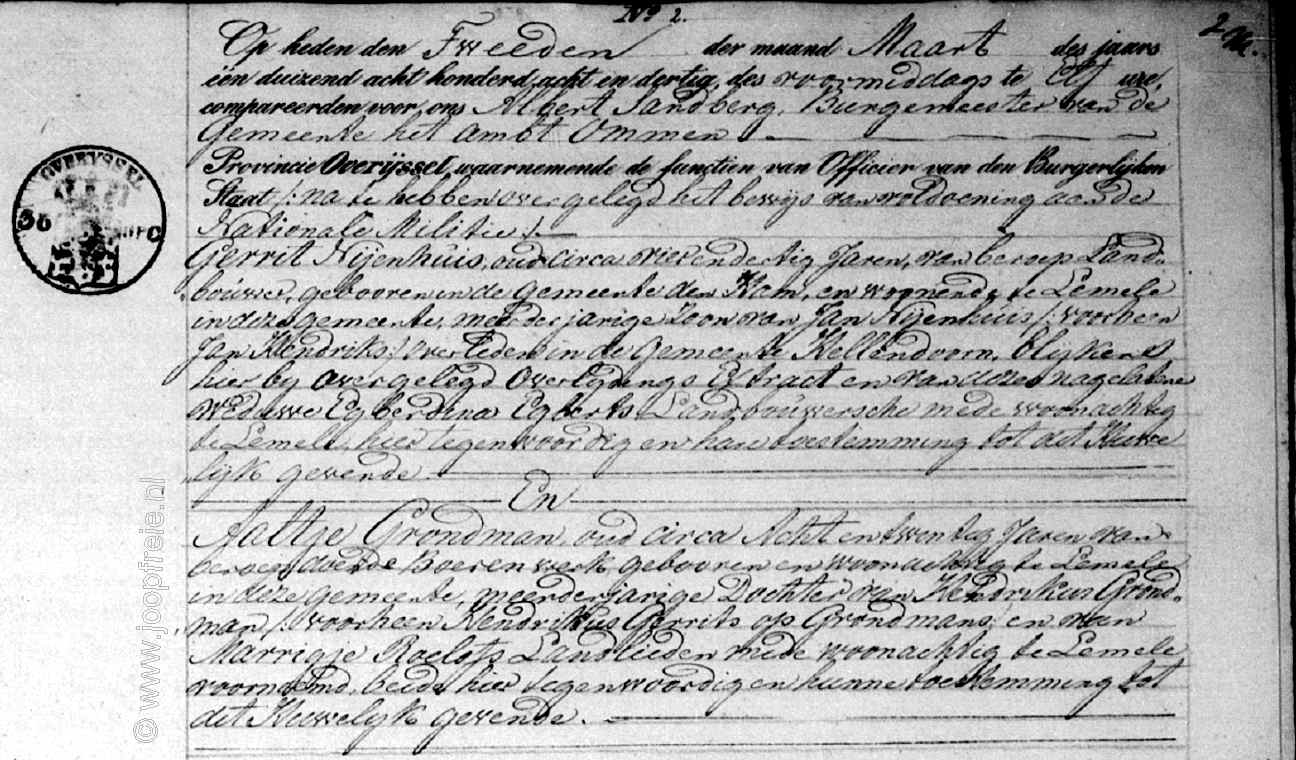 Nº 2.
2
Op heden den Tweeden der maand Maart des jaars
een duizend acht honderd acht en dertig, des voormiddags te Elf ure,
compareerden voor ons Albert Sandberg, Burgemeester van de
Gemeente het ambt Ommen
Provincie Overijssel, waarnemende de functien van Officier van den Burgerlijken
Staat /: na te hebben overgelegd het bewijs van voldoening aan de
Nationale Militie :/
Gerrit Nijenhuis, oud circa vier en dertig Jaren, van beroep Land-
bouwer, gebooren in de gemeente den Ham, en woonende te Lemele
in deze gemeente, meerderjarige Zoon van Jan Nijenhuis /: voorheen
Jan Hendriks :/ overleden in de gemeente Hellendoorn, blijkens
hier bij overgelegd Overlijdings Extract en van dezes nagelatene
Weduwe Egberdina Egberts Landbouwersche mede woonachtig
te Lemele, hier tegenwoordig en hare toestemming tot dit Huwe
lijk gevende.
En
Aaltje Grondman, oud circa Acht en twentig Jaren van
beroep doende Boerenwerk, gebooren en woonachtig te Lemele
in deze gemeente, meerderjarige Dochter van Hendrikus Grond-
man /: voorheen Hendrikus Gerrits op Grondmans :/ en van
Marrigje Roelofs Landlieden mede woonachtig te Lemele
voornoemd, beide hier tegenwoordig en hunne toestemming tot
dit Huwelijk gevende.
OVERYSSEL
36
© www.joopfreie.nl